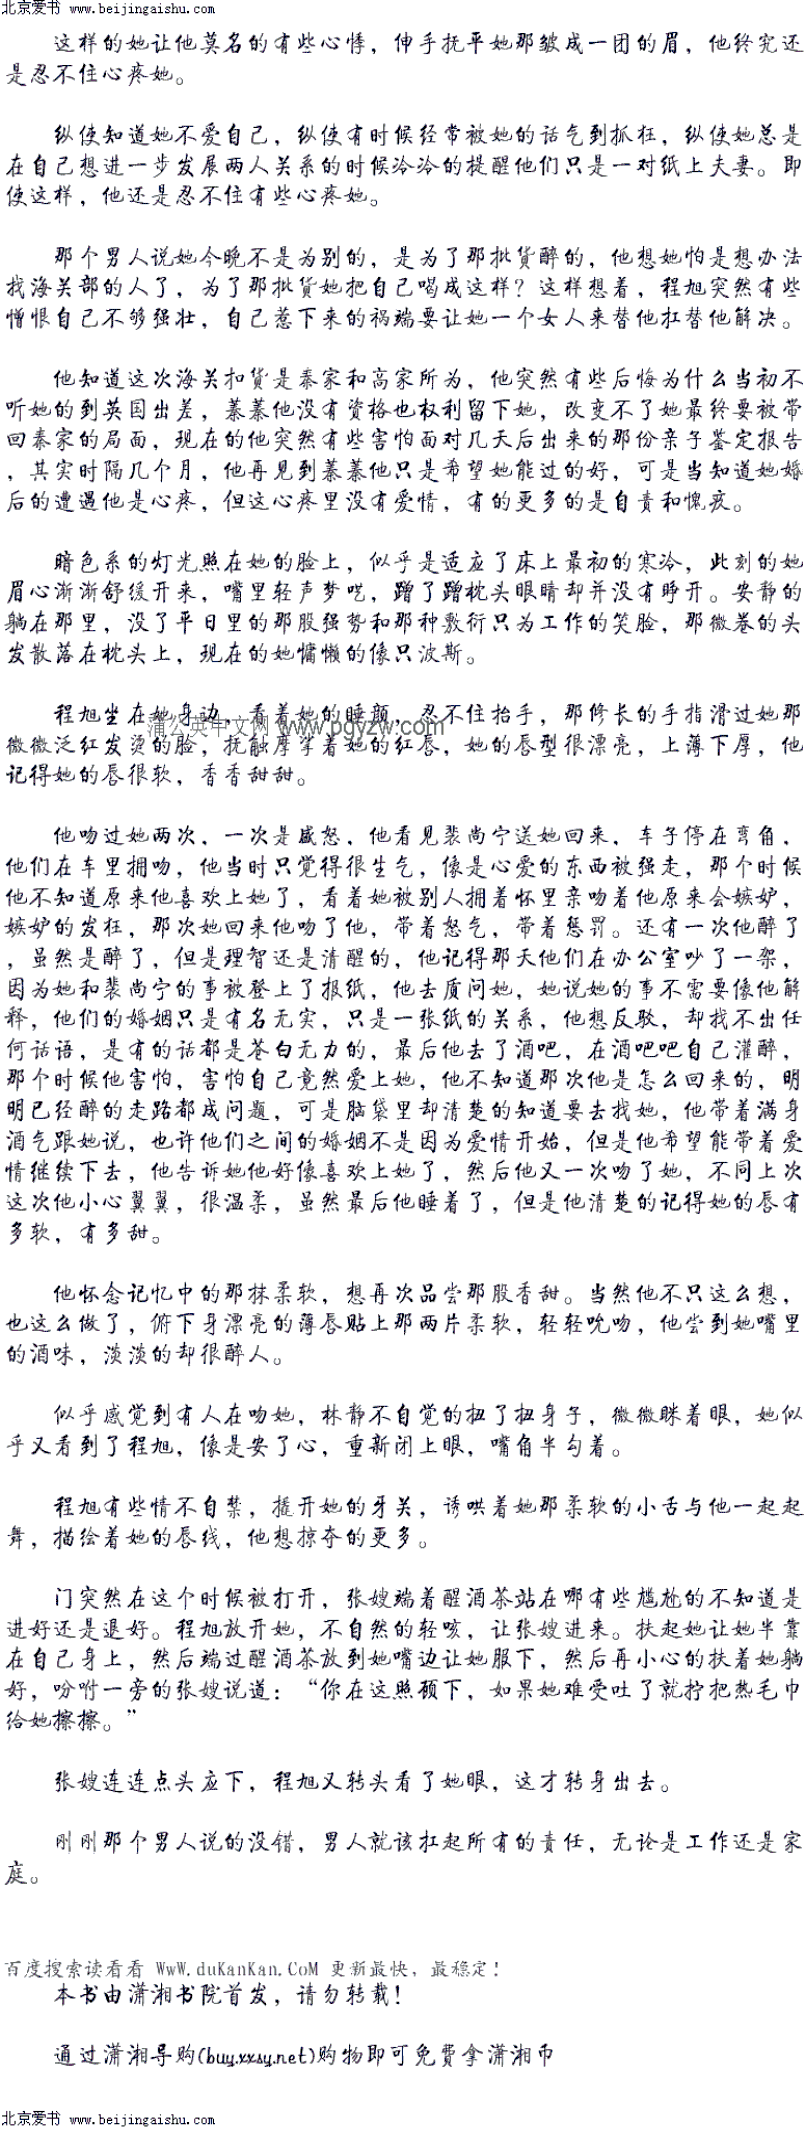 北京爱书 www.beijingaishu.com
这样的她让他莫名的有些心悸，伸手抚平她那皱成一团的眉，他终究还
是忍不住心疼她。
纵使知道她不爱自己，纵使有时候经常被她的话气到抓狂，纵使她总是
在自己想进一步发展两人关系的时候冷冷的提醒他们只是一对纸上夫妻。即
使这样，他还是忍不住有些心疼她。
那个男人说她今晚不是为别的，是为了那批货醉的，他想她怕是想办法
找海关部的人了，为了那批货她把自己喝成这样？这样想着，程旭突然有些
憎恨自己不够强壮，自己惹下来的祸端要让她一个女人来替他扛替他解决。
他知道这次海关扣货是秦家和高家所为，他突然有些后悔为什么当初不
听她的到英国出差，蓁蓁他没有资格也权利留下她，改变不了她最终要被带
回秦家的局面，现在的他突然有些害怕面对几天后出来的那份亲子鉴定报告
，其实时隔几个月，他再见到蓁蓁他只是希望她能过的好，可是当知道她婚
后的遭遇他是心疼，但这心疼里没有爱情，有的更多的是自责和愧疚。
暗色系的灯光照在她的脸上，似乎是适应了床上最初的寒冷，此刻的她
眉心渐渐舒缓开来，嘴里轻声梦呓，蹭了蹭枕头眼睛却并没有睁开。安静的
躺在那里，没了平日里的那股强势和那种敷衍只为工作的笑脸，那微卷的头
发散落在枕头上，现在的她慵懒的像只波斯。
程旭坐在她身边，看着她的睡颜，忍不住抬手，那修长的手指滑过她那
蒲公英中文网 www.pgyzw.com
微微泛红发烫的脸，抚触摩挲着她的红唇，她的唇型很漂亮，上薄下厚，他
记得她的唇很软，香香甜甜。
他吻过她两次，一次是盛怒，他看见裴尚宁送她回来，车子停在弯角，
他们在车里拥吻，他当时只觉得很生气，像是心爱的东西被强走，那个时候
他不知道原来他喜欢上她了，看着她被别人拥着怀里亲吻着他原来会嫉妒，
嫉妒的发狂，那次她回来他吻了他，带着怒气，带着惩罚。还有一次他醉了
，虽然是醉了，但是理智还是清醒的，他记得那天他们在办公室吵了一架，
因为她和裴尚宁的事被登上了报纸，他去质问她，她说她的事不需要像他解
释，他们的婚姻只是有名无实，只是一张纸的关系，他想反驳，却找不出任
何话语，是有的话都是苍白无力的，最后他去了酒吧，在酒吧吧自己灌醉，
那个时候他害怕，害怕自己竟然爱上她，他不知道那次他是怎么回来的，明
明已经醉的走路都成问题，可是脑袋里却清楚的知道要去找她，他带着满身
酒气跟她说，也许他们之间的婚姻不是因为爱情开始，但是他希望能带着爱
情继续下去，他告诉她他好像喜欢上她了，然后他又一次吻了她，不同上次
这次他小心翼翼，很温柔，虽然最后他睡着了，但是他清楚的记得她的唇有
多软，有多甜。
他怀念记忆中的那抹柔软，想再次品尝那股香甜。当然他不只这么想，
也这么做了，俯下身漂亮的薄唇贴上那两片柔软，轻轻吮吻，他尝到她嘴里
的酒味，淡淡的却很醉人。
似乎感觉到有人在吻她，林静不自觉的扭了扭身子，微微眯着眼，她似
乎又看到了程旭，像是安了心，重新闭上眼，嘴角半勾着。
程旭有些情不自禁，撬开她的牙关，诱哄着她那柔软的小舌与他一起起
舞，描绘着她的唇线，他想掠夺的更多。
门突然在这个时候被打开，张嫂端着醒酒茶站在哪有些尴尬的不知道是
进好还是退好。程旭放开她，不自然的轻咳，让张嫂进来。扶起她让她半靠
在自己身上，然后端过醒酒茶放到她嘴边让她服下，然后再小心的扶着她躺
好，吩咐一旁的张嫂说道：“你在这照顾下，如果她难受吐了就拧把热毛巾
给她擦擦。”
张嫂连连点头应下，程旭又转头看了她眼，这才转身出去。
刚刚那个男人说的没错，男人就该扛起所有的责任，无论是工作还是家
庭。
百度搜索读看看 WwW.duKanKan.CoM 更新最快，最稳定！
本书由潇湘书院首发，请勿转载！
通过潇湘导购(buy.xxsy.net)购物即可免费拿潇湘币
北京爱书 www.beijingaishu.com